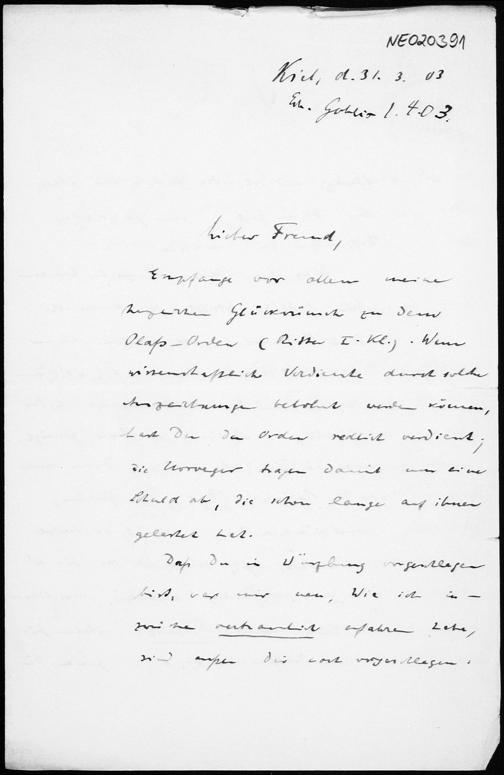 NE020391
Kiel, d. 31. 3. 03
Erh. 1. 4. 03.
Lieber Freund,
Empfange vor allem meine
herzlichen Glückwünsche zu dem
Olafs-Orden (Ritter I. Kl.). Wenn
wissenschaftlich Verdienste durch solche
Auszeichnungen belohnt werden können,
hast Du den Orden redlich verdient;
die Norweger tragen damit nur eine
Schuld ab, die schon lange auf ihnen
gelastet hat.
Daß Du in Würzburg vorgeschlagen
bist, war mir neu. Wie ich in-
zwischen vertraulich erfahren habe,
sind außer Dir noch vorgeschlagen: